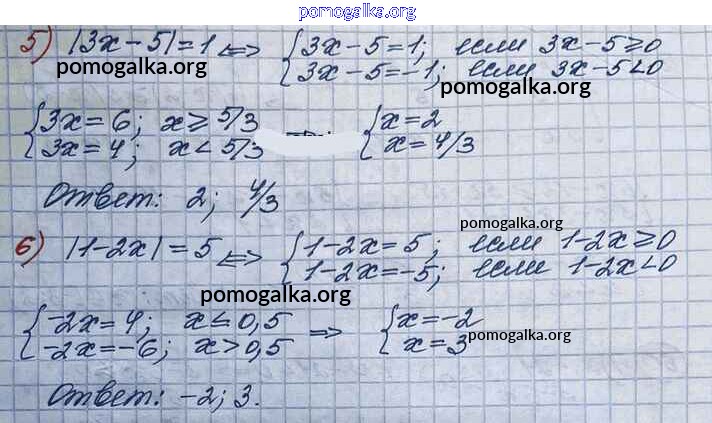 pomogalka.org
5) |3x-5|=1 <=> { 3x-5=1; если 3x-5≥0
pomogalka.org
3x-5=-1; если 3x-5<0
pomogalka.org
{ 3x=6; x≥5/3 { x=2
3x=4; x<5/3 x=4/3
Ответ: 2; 4/3
pomogalka.org
6) |1-2x|=5 <=> { 1-2x=5; если 1-2x≥0
1-2x=-5; если 1-2x<0
pomogalka.org
{ -2x=4; x≤0,5 => { x=-2
-2x=-6; x>0,5 x=3
pomogalka.org
Ответ: -2; 3.